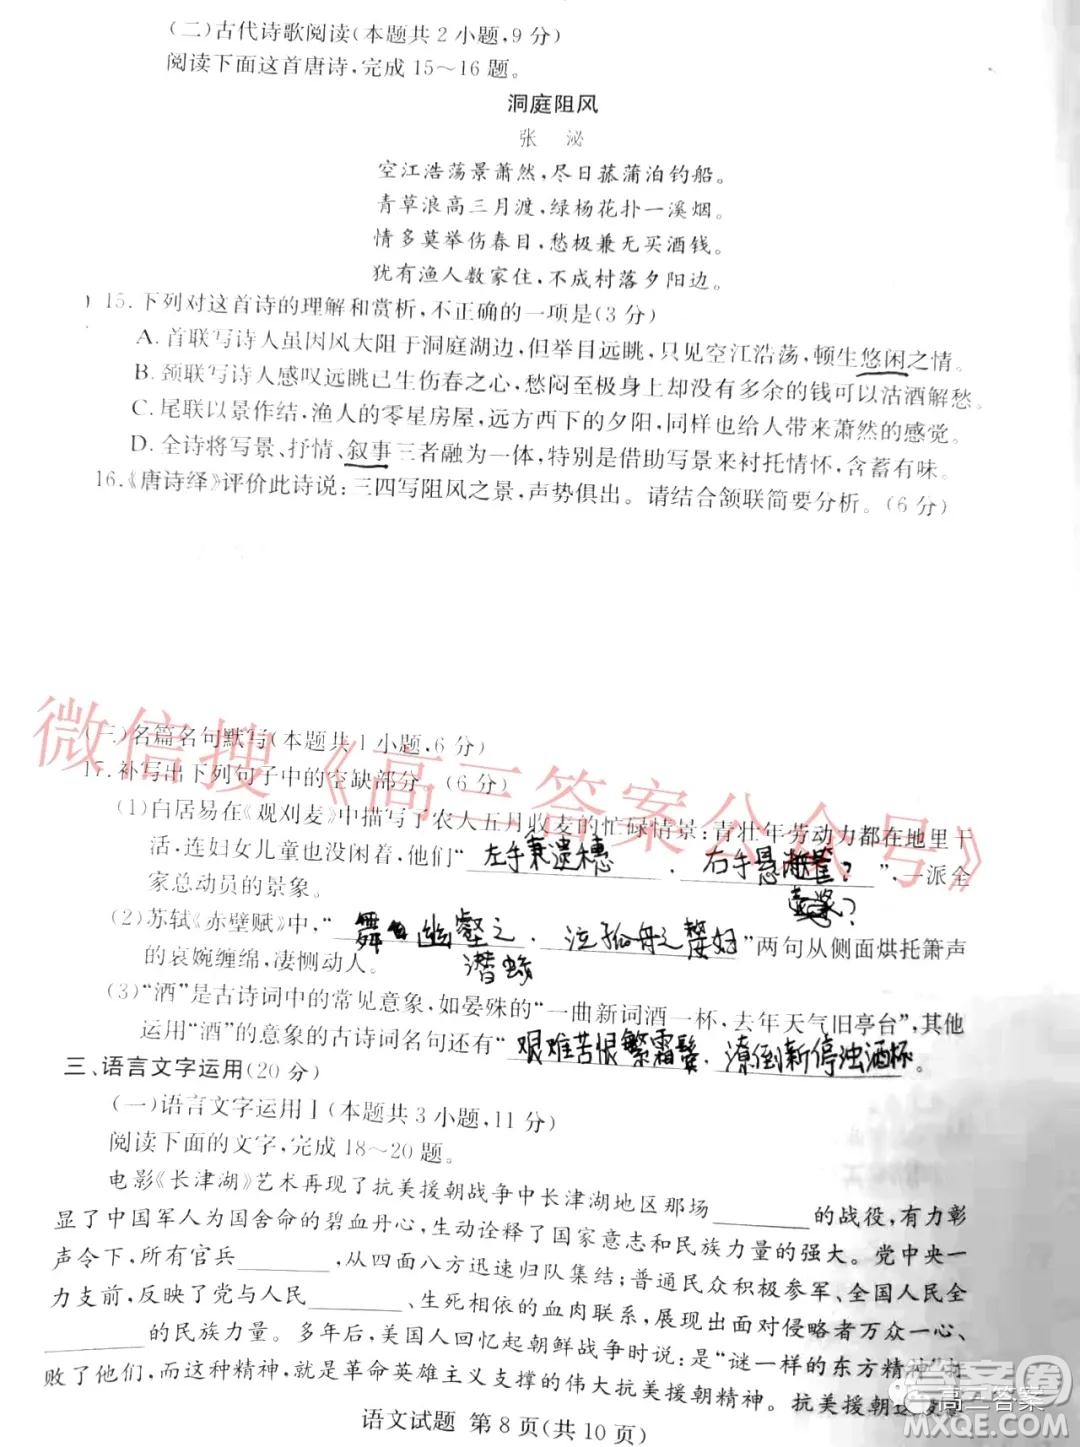 (二)古代诗歌阅读(本题共2小题,9分)
阅读下面这首唐诗,完成15～16题。
洞庭阻风
张 泌
空江浩荡景萧然,尽日菰蒲泊钓船。
青草浪高三月渡,绿杨花扑一溪烟。
情多莫举伤春目,愁极兼无买酒钱。
犹有渔人数家住,不成村落夕阳边。
15.下列对这首诗的理解和赏析,不正确的一项是(3分)
A.首联写诗人虽因风大阻于洞庭湖边,但举目远眺,只见空江浩荡,顿生悠闲之情。
B.颈联写诗人感叹远眺已生伤春之心,愁闷至极身上却没有多余的钱可以沽酒解愁。
C.尾联以景作结,渔人的零星房屋,远方西下的夕阳,同样也给人带来萧然的感觉。
D.全诗将写景、抒情、叙事三者融为一体,特别是借助写景来衬托情怀,含蓄有味。
16.《唐诗绎》评价此诗说:三四写阻风之景,声势俱出。请结合颔联简要分析。(6分)
微信搜《高三答案公众号》
(三)名篇名句默写(本题共1小题,6分)
17.补写出下列句子中的空缺部分。(6分)
(1)白居易在《观刈麦》中描写了农人五月收麦的忙碌情景:青壮年劳动力都在地里干
活,连妇女儿童也没闲着,他们“左手秉遗穗,右手悬 ?”,一派全
家总动员的景象。
(2)苏轼《赤壁赋》中,“舞 幽壑之 潜蛟,泣孤舟之嫠妇”两句从侧面烘托箫声
的哀婉缠绵,凄恻动人。
(3)“酒”是古诗词中的常见意象,如晏殊的“一曲新词酒一杯,去年天气旧亭台”,其他
运用“酒”的意象的古诗词名句还有“艰难苦恨繁霜鬓,潦倒新停浊酒杯。
三、语言文字运用(20分)
(一)语言文字运用Ⅰ(本题共3小题,11分)
阅读下面的文字,完成18～20题。
电影《长津湖》艺术再现了抗美援朝战争中长津湖地区那场________的战役,有力彰
显了中国军人为国舍命的碧血丹心,生动诠释了国家意志和民族力量的强大。党中央一
声令下,所有官兵________,从四面八方迅速归队集结;普通民众积极参军、全国人民全
力支前,反映了党与人民________、生死相依的血肉联系,展现出面对侵略者万众一心、
________的民族力量。多年后,美国人回忆起朝鲜战争时说:是“谜一样的东方精神”打
败了他们,而这种精神,就是革命英雄主义支撑的伟大抗美援朝精神。抗美援朝
语文试题 第8页(共10页)
答案圈
高三答案